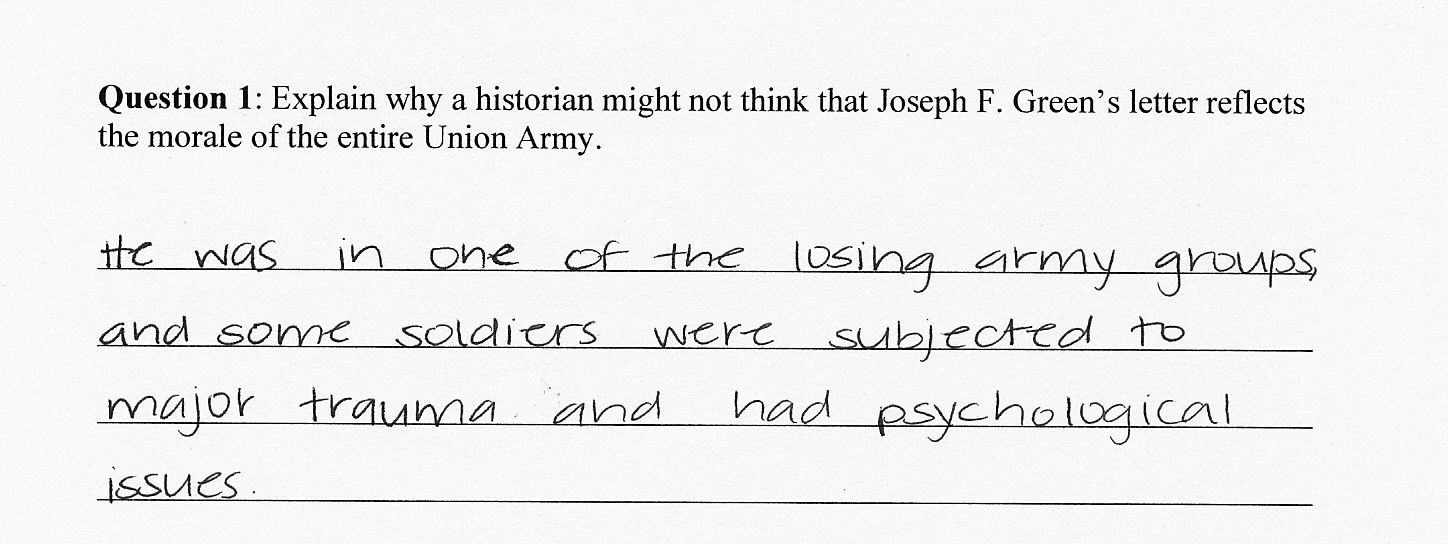 Question 1: Explain why a historian might not think that Joseph F. Green's letter reflects
the morale of the entire Union Army.
He was in one of the losing army groups,
and some soldiers were subjected to
major trauma and had psychological
issues.